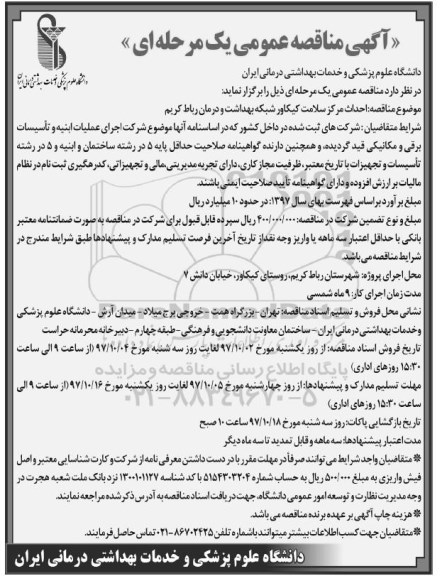 «آگهی مناقصه عمومی یک مرحله‌ای»
دانشگاه علوم پزشکی و خدمات بهداشتی درمانی ایران
دانشگاه علوم پزشکی و خدمات بهداشتی درمانی ایران
در نظر دارد مناقصه عمومی یک مرحله‌ای ذیل را برگزار نماید:
موضوع مناقصه: احداث مرکز سلامت کیکاور شبکه بهداشت و درمان رباط کریم
شرایط متقاضیان: شرکت های ثبت شده در داخل کشور که در اساسنامه آنها موضوع شرکت اجرای عملیات ابنیه و تأسیسات
برقی و مکانیکی قید گردیده، و همچنین دارنده گواهینامه صلاحیت حداقل پایه ۵ در رشته ساختمان و ابنیه و ۵ در رشته
تأسیسات و تجهیزات با تاریخ معتبر، ظرفیت مجاز کاری، دارای تجربه مدیریتی، مالی و تجهیزاتی، کدرهگیری ثبت نام در نظام
مالیات بر ارزش افزوده و دارای گواهینامه تأیید صلاحیت ایمنی باشند.
مبلغ برآورد براساس فهرست بهای سال ۱۳۹۷: در حدود ۱۰ میلیارد ریال
مبلغ و نوع تضمین شرکت در مناقصه: ۴۰۰/۰۰۰/۰۰۰ ریال سپرده قابل قبول برای شرکت در مناقصه به صورت ضمانتنامه معتبر
بانکی با حداقل اعتبار سه ماهه یا واریز وجه نقد از تاریخ آخرین فرصت تسلیم مدارک و پیشنهادها طبق شرایط مندرج در
شرایط مناقصه می باشد.
محل اجرای پروژه: شهرستان رباط کریم، روستای کیکاور، خیابان دانش ۷
مدت زمان اجرای کار: ۹ ماه شمسی
نشانی محل فروش و تسلیم اسناد مناقصه: تهران - بزرگراه همت - خروجی برج میلاد - میدان آرش - دانشگاه علوم پزشکی
وخدمات بهداشتی درمانی ایران - ساختمان معاونت دانشجویی و فرهنگی - طبقه چهارم - دبیرخانه محرمانه حراست
تاریخ فروش اسناد مناقصه: از روز یکشنبه مورخ ۹۷/۱۰/۰۲ لغایت روز سه شنبه مورخ ۹۷/۱۰/۰۴ (از ساعت ۹ الی ساعت
۱۵:۳۰ روزهای اداری)
مهلت تسلیم مدارک و پیشنهادها: از روز چهارشنبه مورخ ۹۷/۱۰/۰۵ لغایت روز یکشنبه مورخ ۹۷/۱۰/۱۶ (از ساعت ۹ الی
ساعت ۱۵:۳۰ روزهای اداری)
تاریخ بازگشایی پاکات: روز سه شنبه مورخ ۹۷/۱۰/۱۸ ساعت ۱۰ صبح
مدت اعتبار پیشنهادها: سه ماهه و قابل تمدید تا سه ماه دیگر
※ متقاضیان واجد شرایط می توانند صرفاً در مهلت مقرر با در دست داشتن معرفی نامه از شرکت و کارت شناسایی معتبر و اصل
فیش واریزی به مبلغ ۵۰۰/۰۰۰ ریال به حساب شماره ۵۱۵۴۳۰۳۲۰۴ با کد شناسه ۱۳۰۰۱۰۱۱۲۷ نزد بانک ملت شعبه هجرت در
وجه مدیریت نظارت و توسعه امور عمومی دانشگاه، جهت دریافت اسناد مناقصه به آدرس ذکر شده مراجعه نمایند.
※ هزینه چاپ آگهی بر عهده برنده مناقصه می باشد.
※ متقاضیان جهت کسب اطلاعات بیشتر میتوانند با شماره تلفن ۸۶۷۰۲۴۲۵-۰۲۱ تماس حاصل فرمایند.
پایگاه اطلاع رسانی مناقصه و مزایده
۰۲۱-۸۸۳۴۹۶۷۰-۵
دانشگاه علوم پزشکی و خدمات بهداشتی درمانی ایران